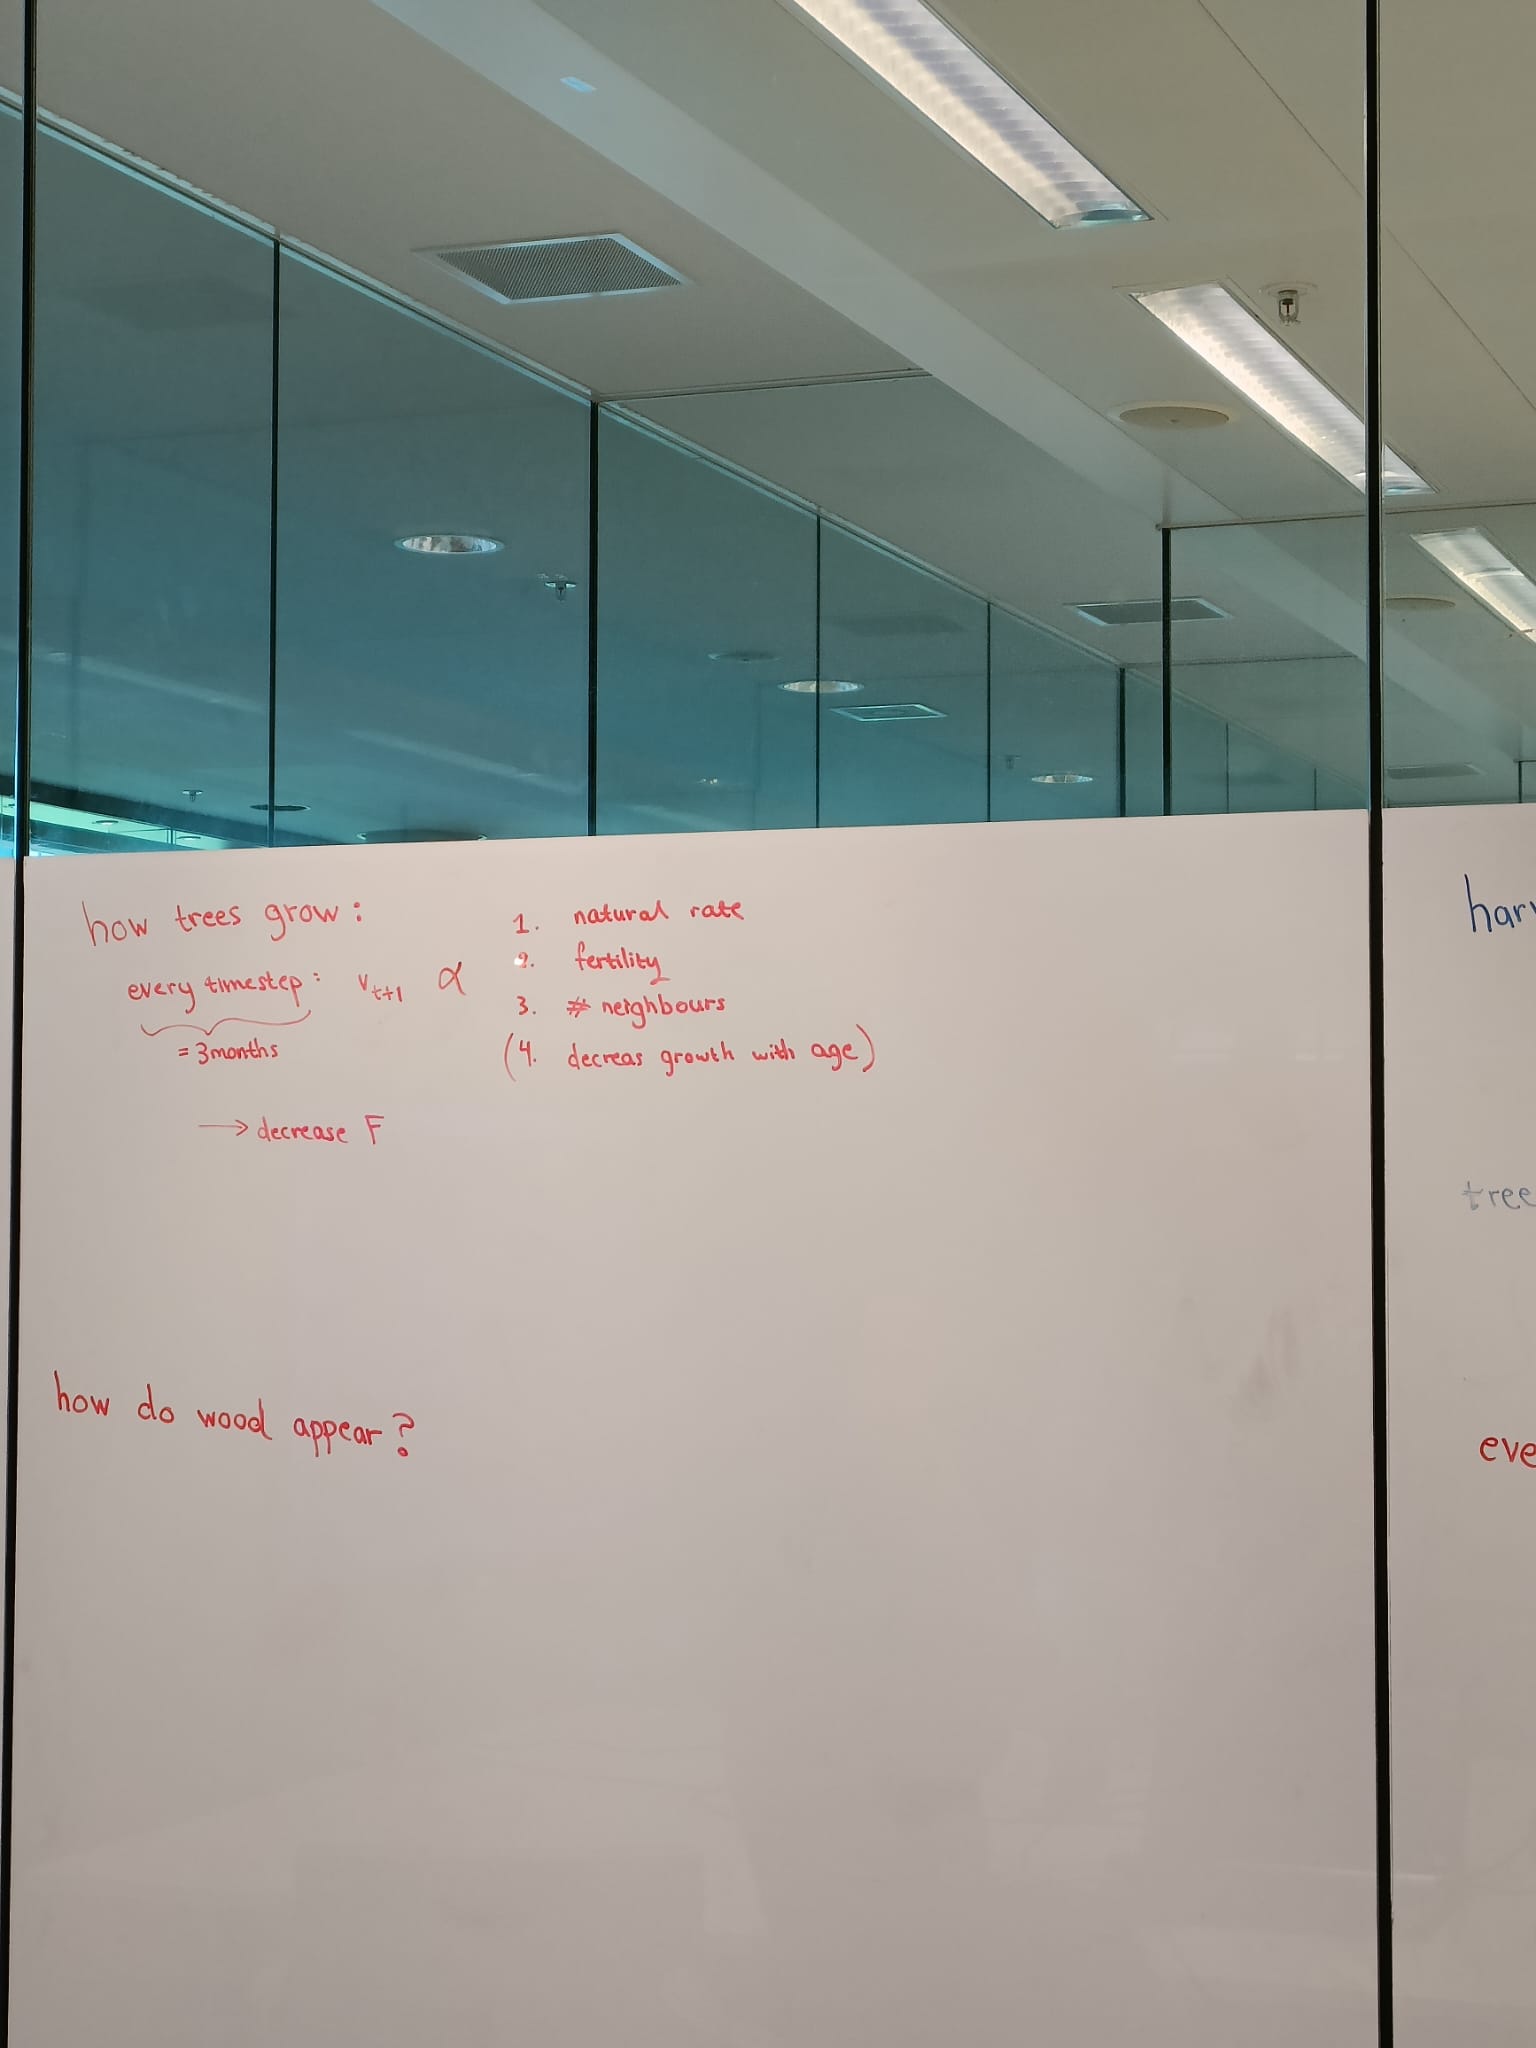 how trees grow:
every timestep: v_t+1 ∝
= 3months
1. natural rate
2. fertility
3. # neighbours
(4. decreas growth with age)
→ decrease F
how do wood appear?
harv
tree
eve